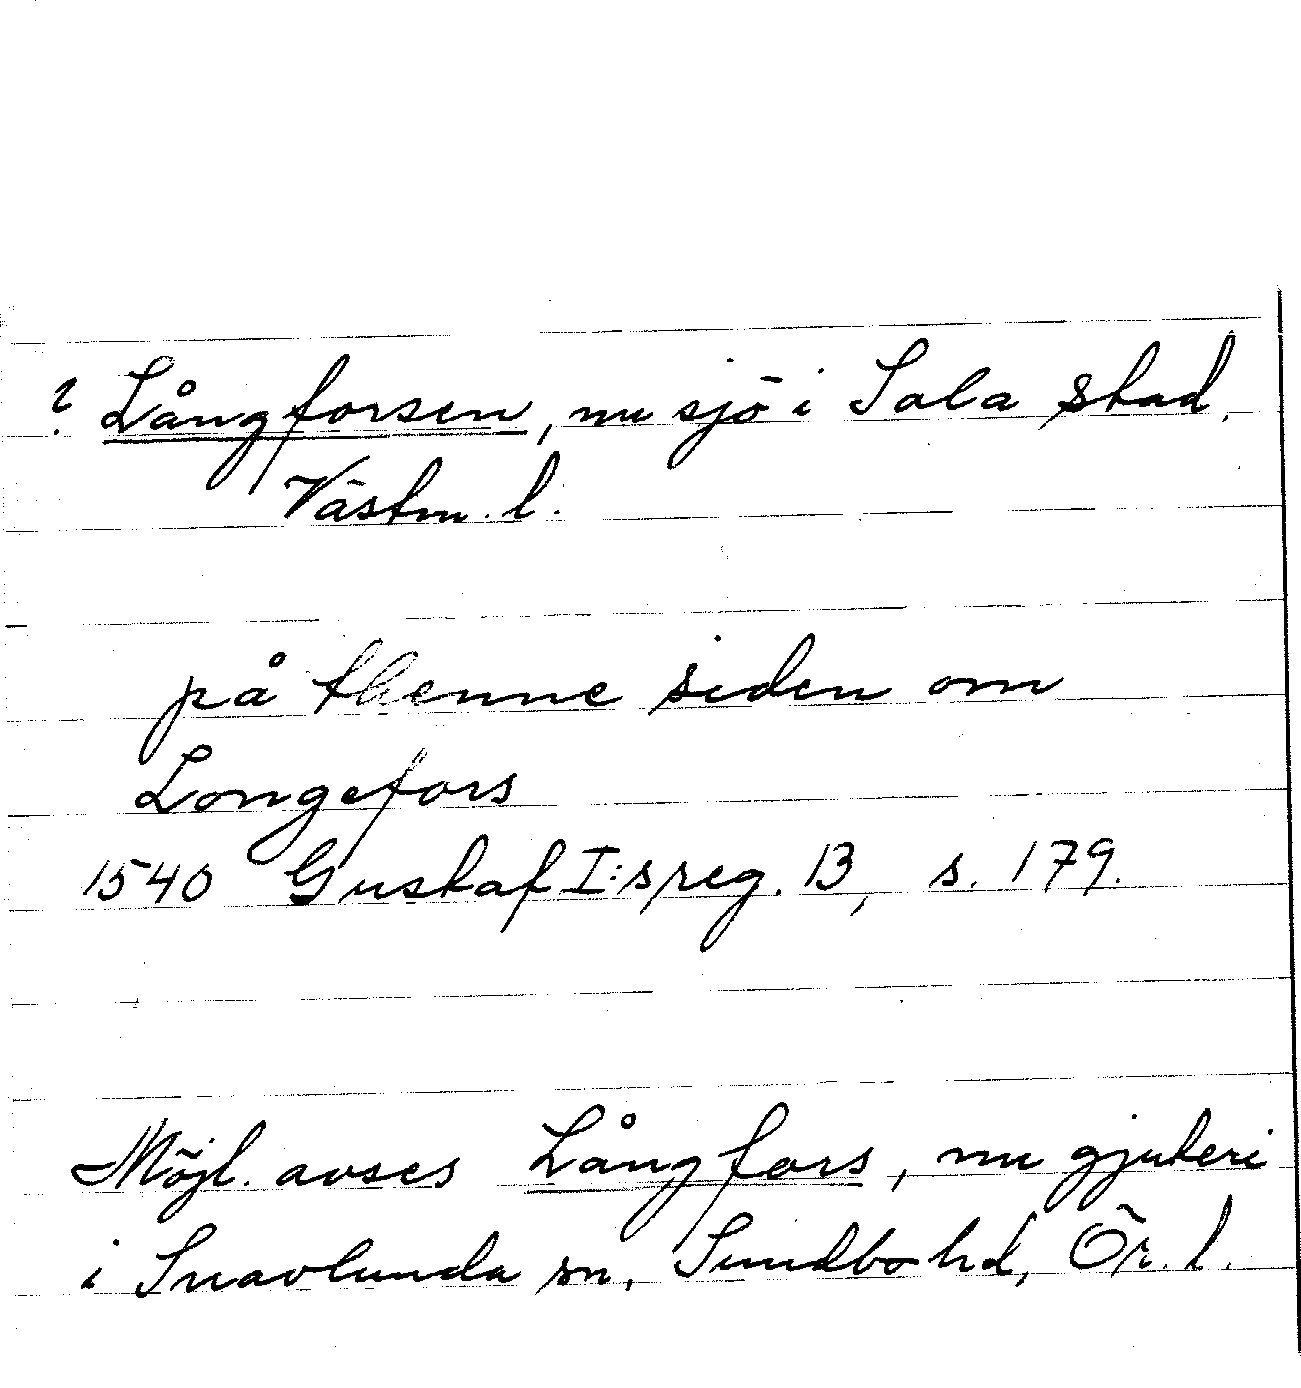 ? Långforsen, nu sjö i Sala stad,
Västm. l.
på thenne siden om
Longefors
1540 Gustaf I:s reg. 13, s. 179.
Möjl. avses Långfors, nu gjuteri
i Snavlunda sn, Sundbo hd, Ör. l.